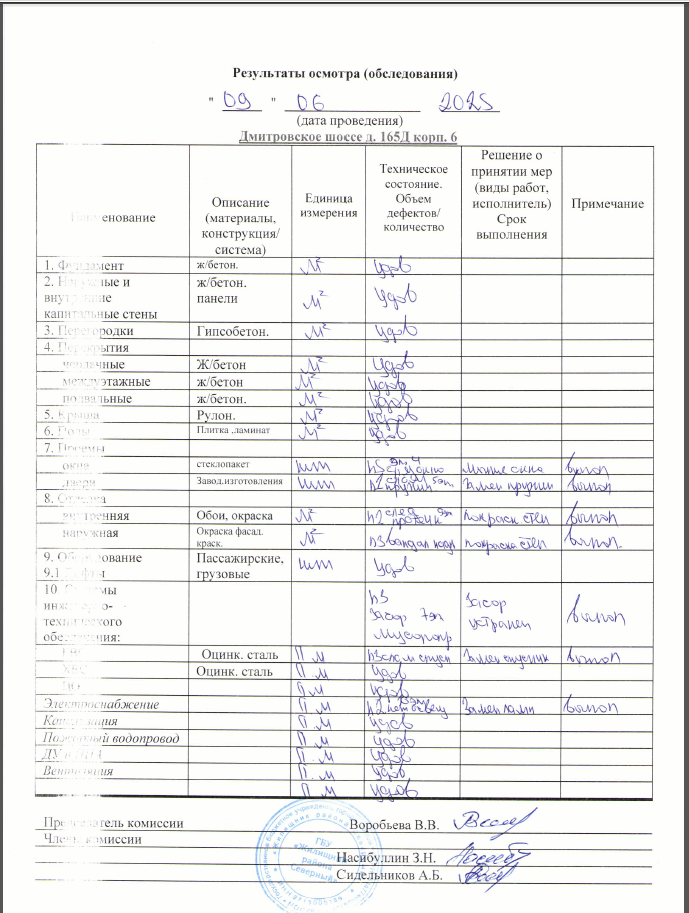 Результаты осмотра (обследования)
" 09 " 06 2025
(дата проведения)
Дмитровское шоссе д. 165Д корп. 6
Наименование
Описание
(материалы,
конструкция/
система)
Единица
измерения
Техническое
состояние.
Объем
дефектов/
количество
Решение о
принятии мер
(виды работ,
исполнитель)
Срок
выполнения
Примечание
1. Фундамент ж/бетон. м² удов
2. Наружные и
внутренние
капитальные стены
ж/бетон.
панели
м² удов
3. Перегородки Гипсобетон. м² удов
4. Перекрытия
чердачные Ж/бетон м² удов
междуэтажные ж/бетон м² удов
подвальные ж/бетон. м² удов
5. Крыша Рулон. м² удов
6. Полы Плитка ,ламинат м² удов
7. Проемы
окна стеклопакет шт выпол
двери Завод.изготовления шт Замен пружин выпол
8. Отделка
внутренняя Обои, окраска м² п2 след протечк покраск стен выпол
наружная Окраска фасад.
краск.
м² п3 покраска стен выпол.
9. Оборудование
9.1 Лифты
Пассажирские,
грузовые
шт удов
10. Системы
инженерно-
технического
обеспечения:
п3
Засор 7эт
мусоропр
Засор
устранен
выпол
ГВС Оцинк. сталь П м выпол
ХВС Оцинк. сталь П. м удов
П м удов
Электроснабжение П м Замен ламп выпол
Канализация П. м удов
Пожарный водопровод П м удов
ДУ и ППА П. м удов
Вентиляция П м удов
П. м удов
Председатель комиссии Воробьева В.В.
Члены комиссии
Насибуллин З.Н.
Сидельников А.Б.
ГБУ
«Жилищник
района
Северный»